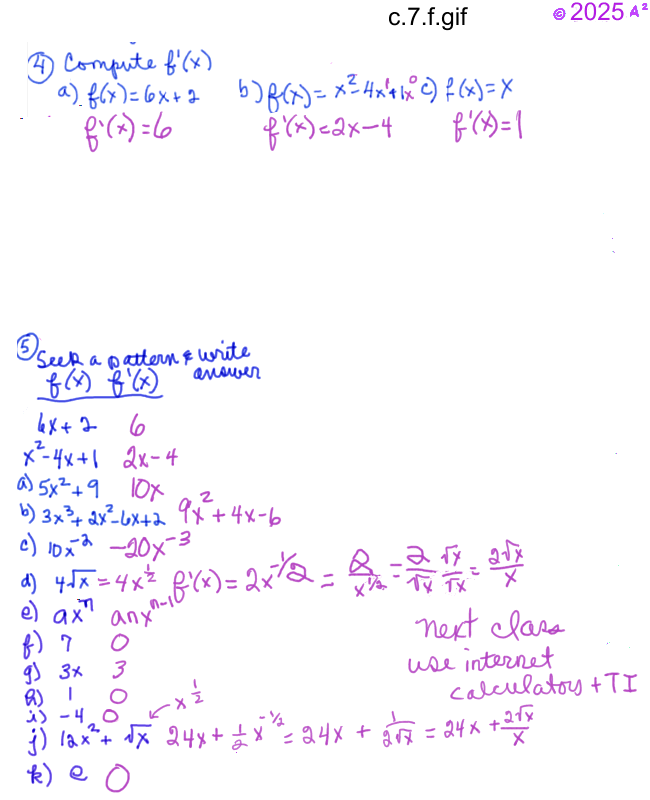 c.7.f.gif
© 2025 A²
④ Compute f'(x)
a) f(x) = 6x + 2 b) f(x) = x² - 4x¹ + 1x⁰ c) f(x) = x
f'(x) = 6 f'(x) = 2x - 4 f'(x) = 1
⑤ Seek a pattern & write answer
f(x) f'(x)
6x + 2 6
x² - 4x + 1 2x - 4
a) 5x² + 9 10x
b) 3x³ + 2x² - 6x + 2 9x² + 4x - 6
c) 10x⁻² -20x⁻³
d) 4√x = 4x^(1/2) f'(x) = 2x^(-1/2) = 2/x^(1/2) = 2/√x √x/√x = 2√x/x
e) axⁿ anxⁿ⁻¹
f) 7 0
g) 3x 3
h) 1 0
i) -4 0
x^(1/2)
j) 12x² + √x 24x + 1/2 x^(-1/2) = 24x + 1/(2√x) = 24x + 2√x/x
k) e 0
next class
use internet
calculators + TI